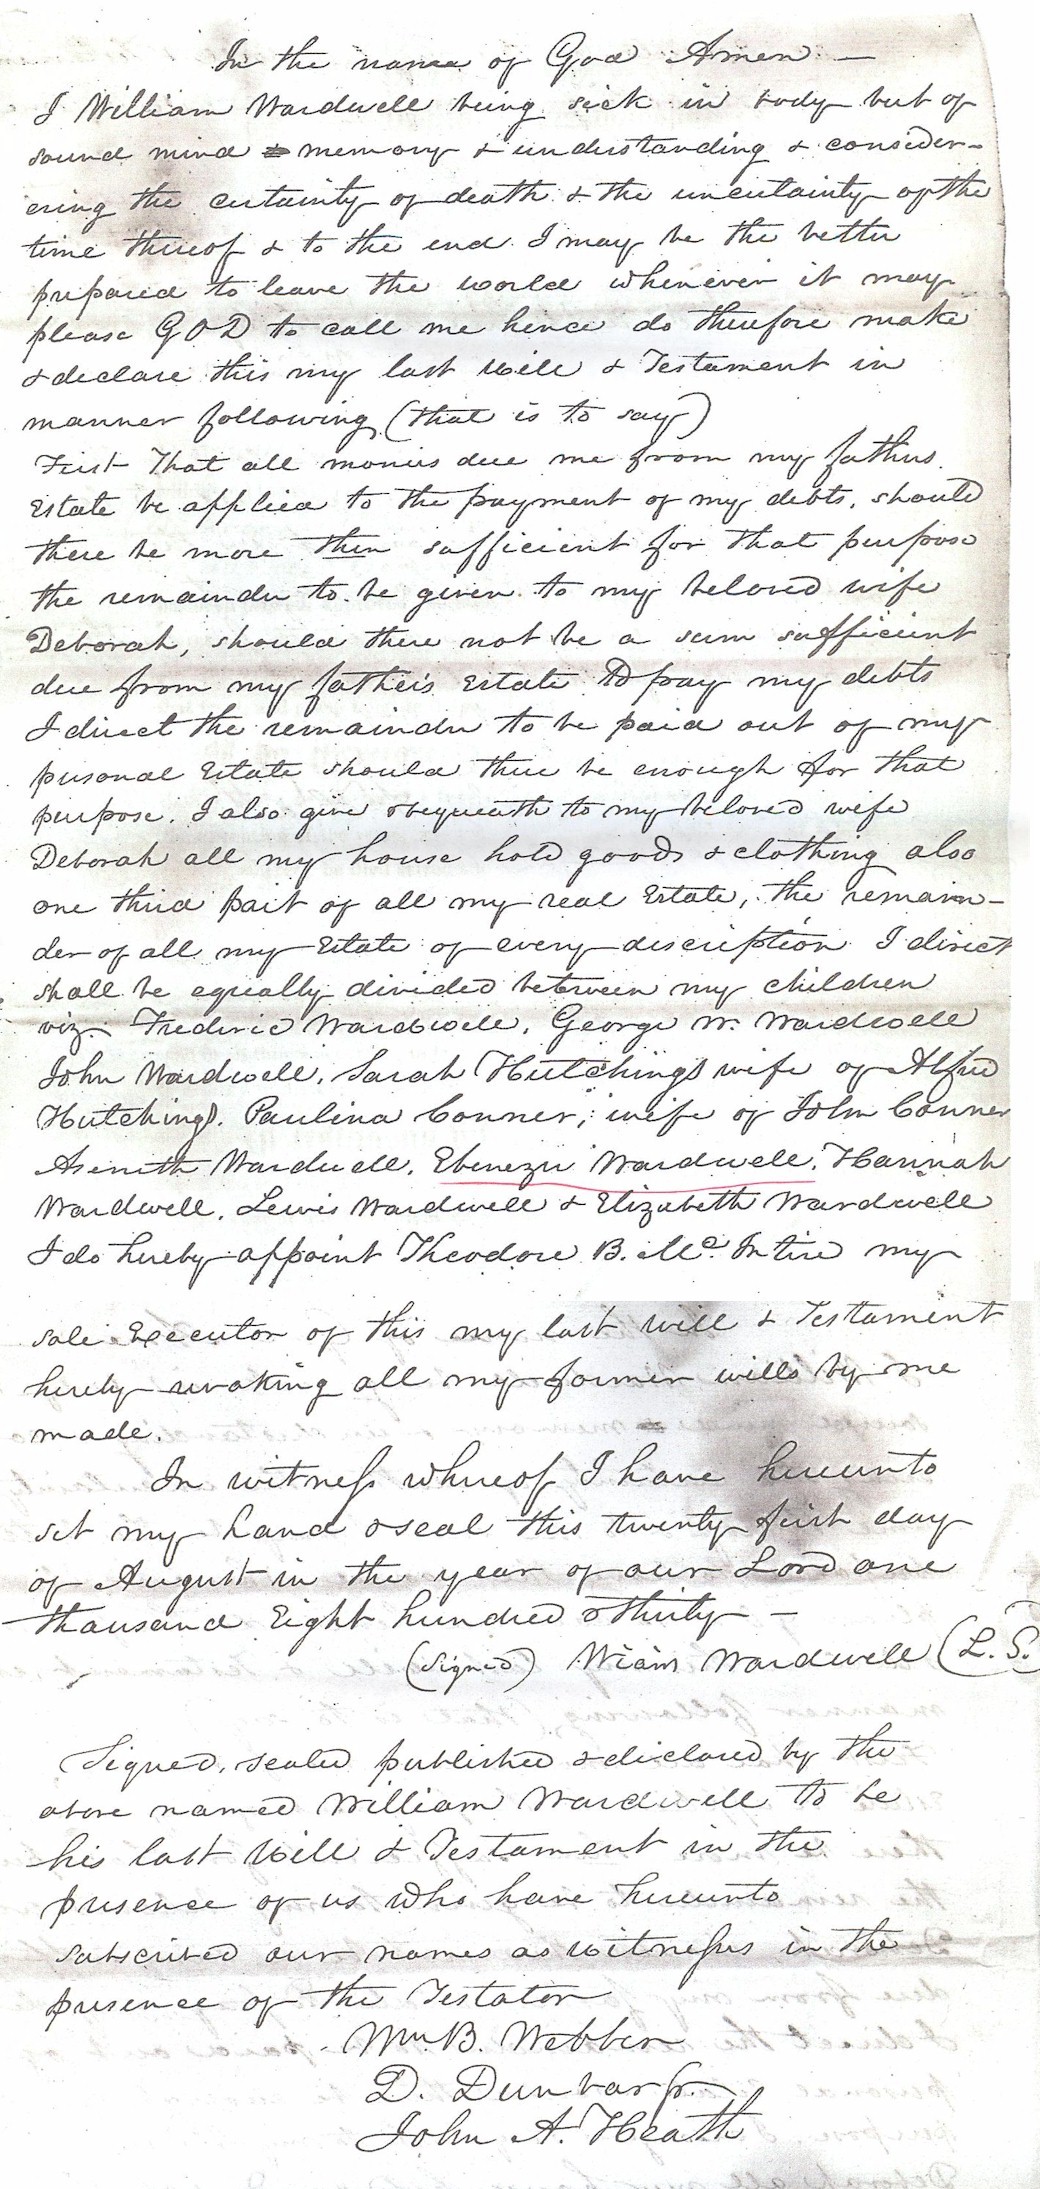 In the name of God Amen —
I William Wardwell being sick in body but of
sound mind & memory & understanding & consider-
ering the certainty of death & the uncertainty of the
time thereof & to the end I may be the better
prepared to leave the world whenever it may
please GOD to call me hence do therefore make
& declare this my last Will & Testament in
manner following (that is to say)
First That all monies due me from my fathers
Estate be applied to the payment of my debts, should
there be more then sufficient for that purpose
the remainder to be given to my beloved wife
Deborah, should there not be a sum sufficient
due from my father's Estate to pay my debts
I direct the remainder to be paid out of my
personal Estate should there be enough for that
purpose. I also give & bequeath to my beloved wife
Deborah all my house hold goods & clothing also
one third part of all my real Estate, the remain-
der of all my Estate of every discription I direct
shall be equally divided between my children
viz. Frederic Wardwell, George W. Wardwell
John Wardwell, Sarah Hutchings wife of Alfred
Hutchings. Paulina Conner, wife of John Conner
Asenith Wardwell, Ebenezer Wardwell, Hannah
Wardwell, Lewis Wardwell & Elizabeth Wardwell
I do hereby appoint Theodore B. Mc. Intire my
sole Executor of this my last will & Testament
hereby revoking all my former wills by me
made.
In witness whereof I have hereunto
set my hand & seal this twenty first day
of August in the year of our Lord one
thousand Eight hundred & thirty —
(Signed) Wiam Wardwell (L. S.)
Signed, sealed published & declared by the
above named William Wardwell to be
his last Will & Testament in the
presence of us who have hereunto
subscribed our names as witnesses in the
presence of the Testator
Wm. B. Webber
D. Dunbar Jr.
John A. Heath